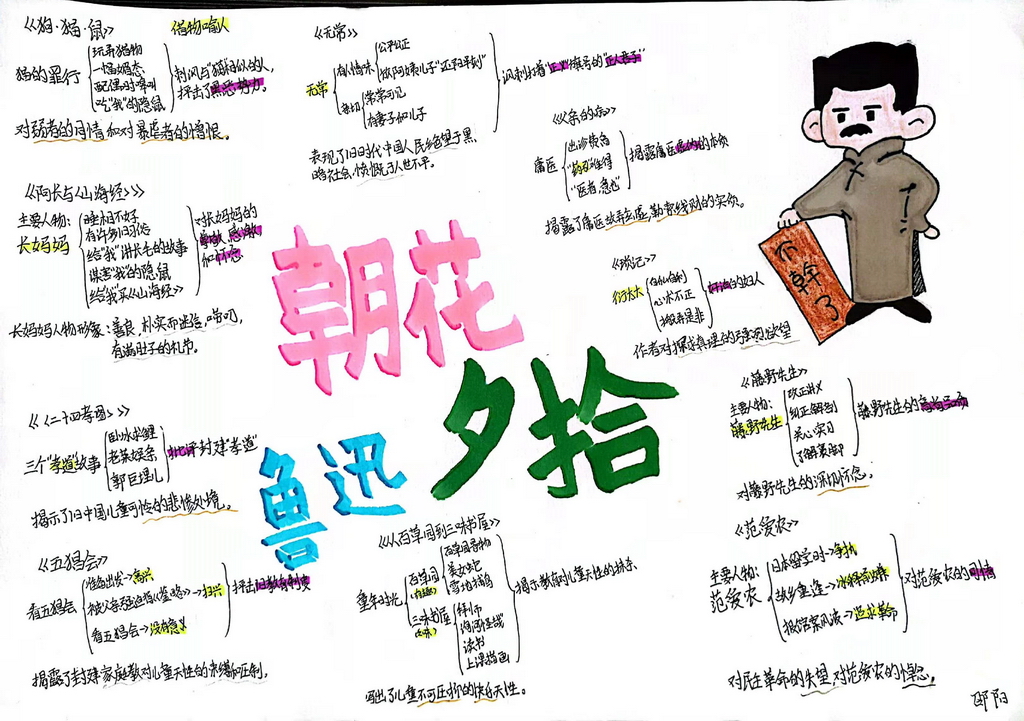 《狗·猫·鼠》 借物喻人
猫的罪行
玩弄猎物
一幅媚态
配偶时嗥叫
吃"我"的隐鼠
讽刺与"猫"相似的人,
抨击了黑恶势力。
对弱者的同情和对暴虐者的憎恨。
《阿长与《山海经》》
主要人物:
长妈妈
睡相不好
有许多旧习俗
给"我"讲长毛的故事
谋害"我"的隐鼠
给"我"买《山海经》
对长妈妈的
尊敬,感激
和怀念
长妈妈人物形象:善良,朴实而迷信,唠叨,
有满肚子的礼节。
《二十四孝图》
三个"孝道"故事
卧冰求鲤
老莱娱亲
郭巨埋儿
批评封建"孝道"
揭示了旧中国儿童可怜的悲惨处境。
《五猖会》
看五猖会
准备出发→高兴
被父亲强迫背《鉴略》→扫兴
看五猖会→没有意义
抨击旧教育制度
揭露了封建家庭教对儿童天性的束缚和压制。
《无常》
无常
有人情味
公平公正
放阿姨儿子"还阳半刻"
亲切
常常可见
有妻子和儿子
讽刺打着"正义"旗号的"正人君子"
表现了旧时代中国人民绝望于黑
暗社会,愤慨于人世不平。
《父亲的病》
庸医
出诊费高
"药引"难得
"医者,意也"
揭露庸医害人的本质
揭露了庸医故弄玄虚,勒索钱财的实质。
《琐记》
衍太太
自私自利
心术不正
挑弄是非
奸诈的妇人
作者对探求真理的强烈欲望
《藤野先生》
主要人物:
藤野先生
改正讲义
纠正解剖图
关心实习
了解裹脚
藤野先生的高尚品质
对藤野先生的深切怀念。
《范爱农》
主要人物:
范爱农
日本留学时→争执
故乡重逢→冰释前嫌
报馆案风波→追求革命
对范爱农的同情
对民主革命的失望,对范爱农的悼念。
《从百草园到三味书屋》
童年时光
百草园
(有趣)
百草园景物
美女蛇
雪地捕鸟
三味书屋
拜师
询问怪哉
读书
上课描画
揭示教育对儿童天性的抹杀
写出了儿童不可压抑的快乐天性。
朝花
夕拾
鲁迅
不
幹
了
邵阳